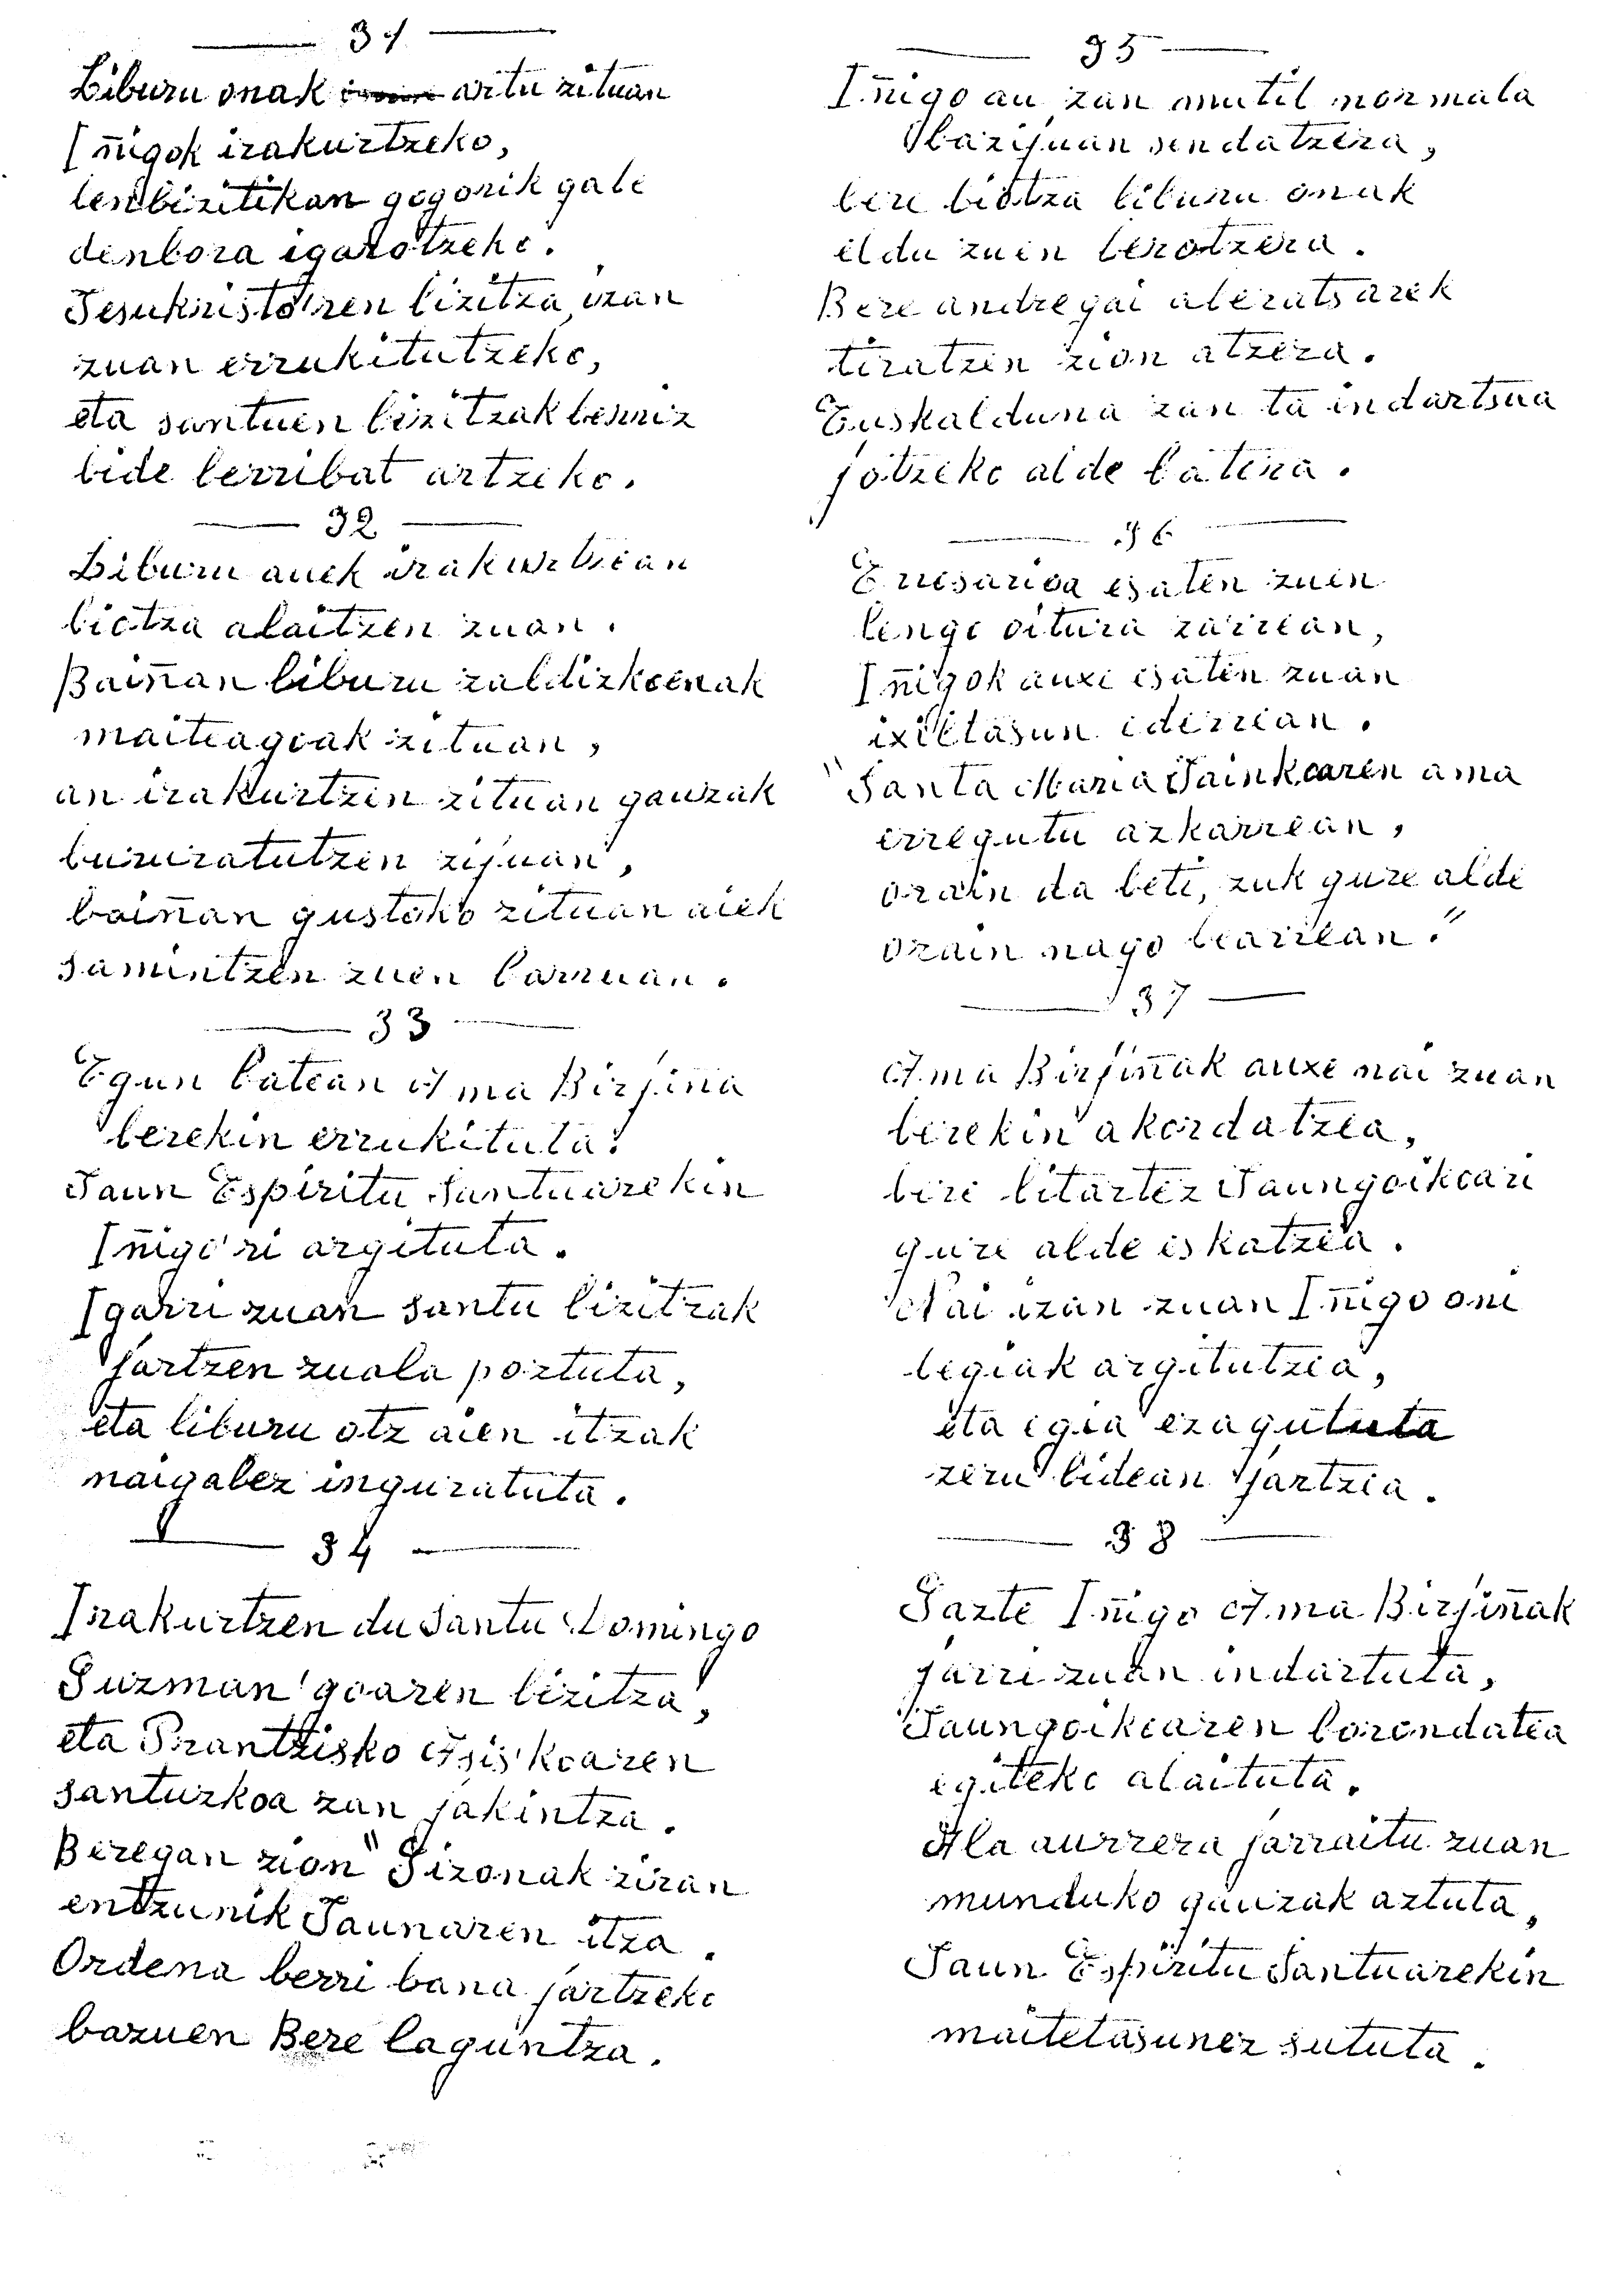 31
Liburu onak artu zituan
Iñigok irakurtzeko,
lenbizitikan gogorik gabe
denbora igarotzeko.
Jesukristo'ren bizitza izan
zuan errukitutzeko,
eta santuen bizitzak berriz
bide berribat artzeko.
32
Liburu auek irakurtzean
biotza alaitzen zuan.
Baiñan liburu zaldizkoenak
maiteagoak zituan,
an irakurtzen zituan gauzak
bururatutzen zijuan,
baiñan gustoko zituan aiek
samintzen zuen barruan.
33
Egun batean Ama Birjiña
berekin errukituta:
Jaun Espiritu Santuarekin
Iñigo'ri argituta.
Igarri zuan santu bizitzak
jartzen zuala poztuta,
eta liburu otz aien itzak
naigabez inguratuta.
34
Irakurtzen du Santu Domingo
Guzman'goaren bizitza,
eta Prantzisko Asis'koaren
santuzkoa zan jakintza.
Beregan zion "Gizonak ziran
entzunik Jaunaren itza.
Ordena berri bana jartzeko
bazuen Bere laguntza.
35
Iñigo au zan mutil normala
bazijuan sendatzera,
bere biotza liburu onak
eldu zuen berotzera.
Bere andregai aberatsarek
tiratzen zion atzera.
Euskalduna zan ta indartsua
jotzeko alde batera.
36
Errosarioa esaten zuen
lengo oitura zarrean,
Iñigok auxe esaten zuan
ixiltasun ederrean.
"Santa Maria Jainkoaren ama
erregutu azkarrean,
orain da beti, zuk gure alde
orain nago bearrean."
37
Ama Birjiñak auxe nai zuan
berekin akordatzea,
bere bitartez Jaungoikoari
gure alde eskatzea.
Nai izan zuan Iñigo oni
begiak argitutzea,
eta egia ezagututa
zeru bidean jartzea.
38
Gazte Iñigo Ama Birjiñak
jarri zuan indartuta,
Jaungoikoaren borondatea
egiteko alaituta.
Ala aurrera jarraitu zuan
munduko gauzak aztuta,
Jaun Espiritu Santuarekin
maitetasunez sututa.